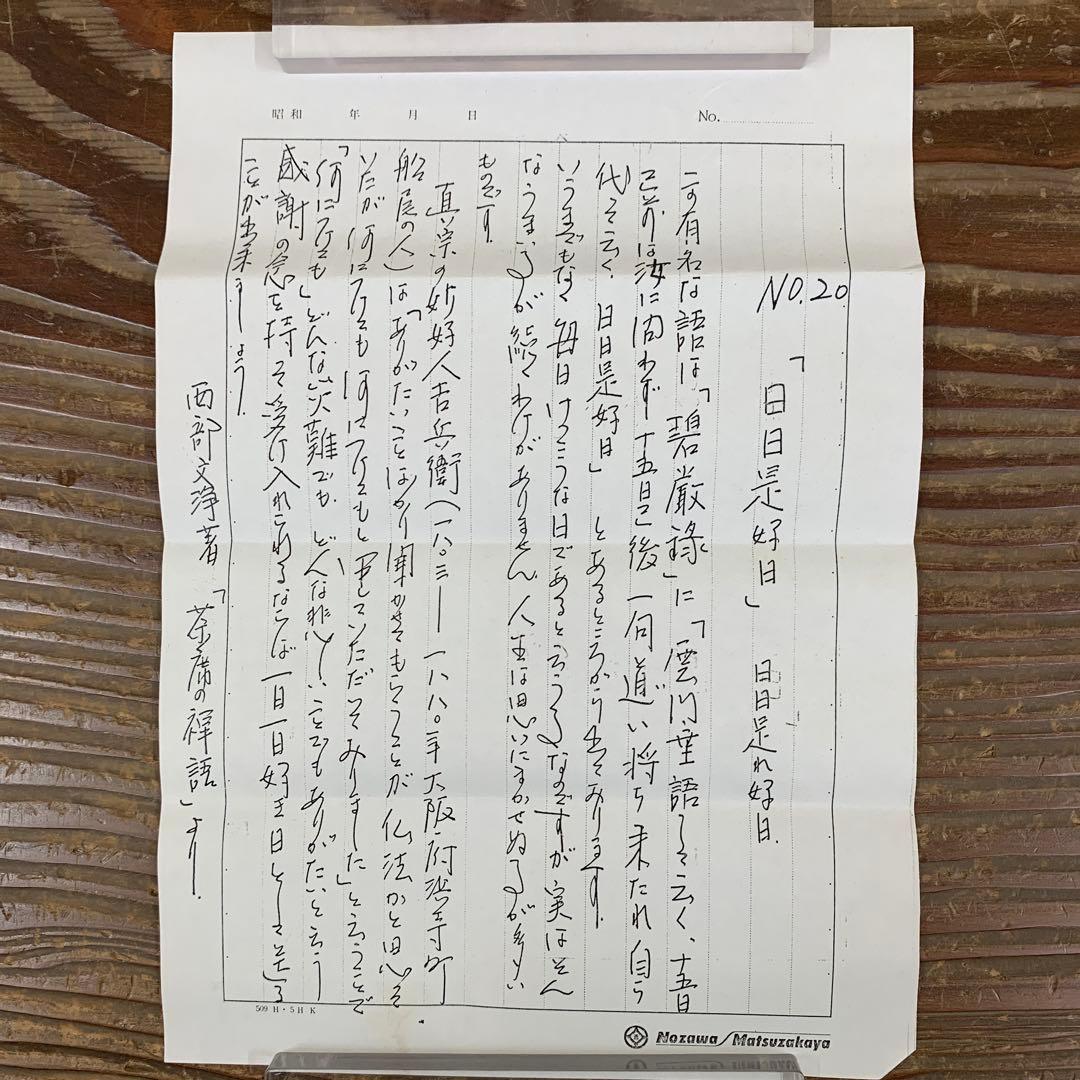 昭和 年 月 日 No.
NO.20 「日日是好日」 日日是れ好日.
この有名な語は「碧巌録」に「雲門垂語して云く、十五日
已前は汝に問わず 十五日已後 一句道い将ち来たれ 自ら
代って云く、日日是好日」とあるところから出てあります.
いうまでもなく毎日けっこうな日であるという事なのですが実はそん
なうまい事が続くわけがありません 人生は思いにまかせぬ事が多い
ものです.
真宗の妙好人吉兵衛(一八〇三ー一八八〇年大阪府浜寺町
船尾の人)は「ありがたいことばかり聞かせてもらうことが仏法かと思って
いたが何につけても何につけてもと 出ていただいてみりました」と云うことで
「何につけても」どんな災難でも どんな悲しいことでもありがたいと云う
感謝の念を持って受け入れられるならば 一日一日好き日として送る
ことが出来ましょう.
西部文浄著「茶席の禅語」より.
509 H・5 H K
Nozawa/Matsuzakaya